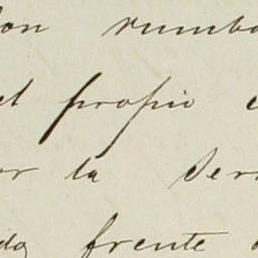 con rumbo
el propio
or la Ser
do frente